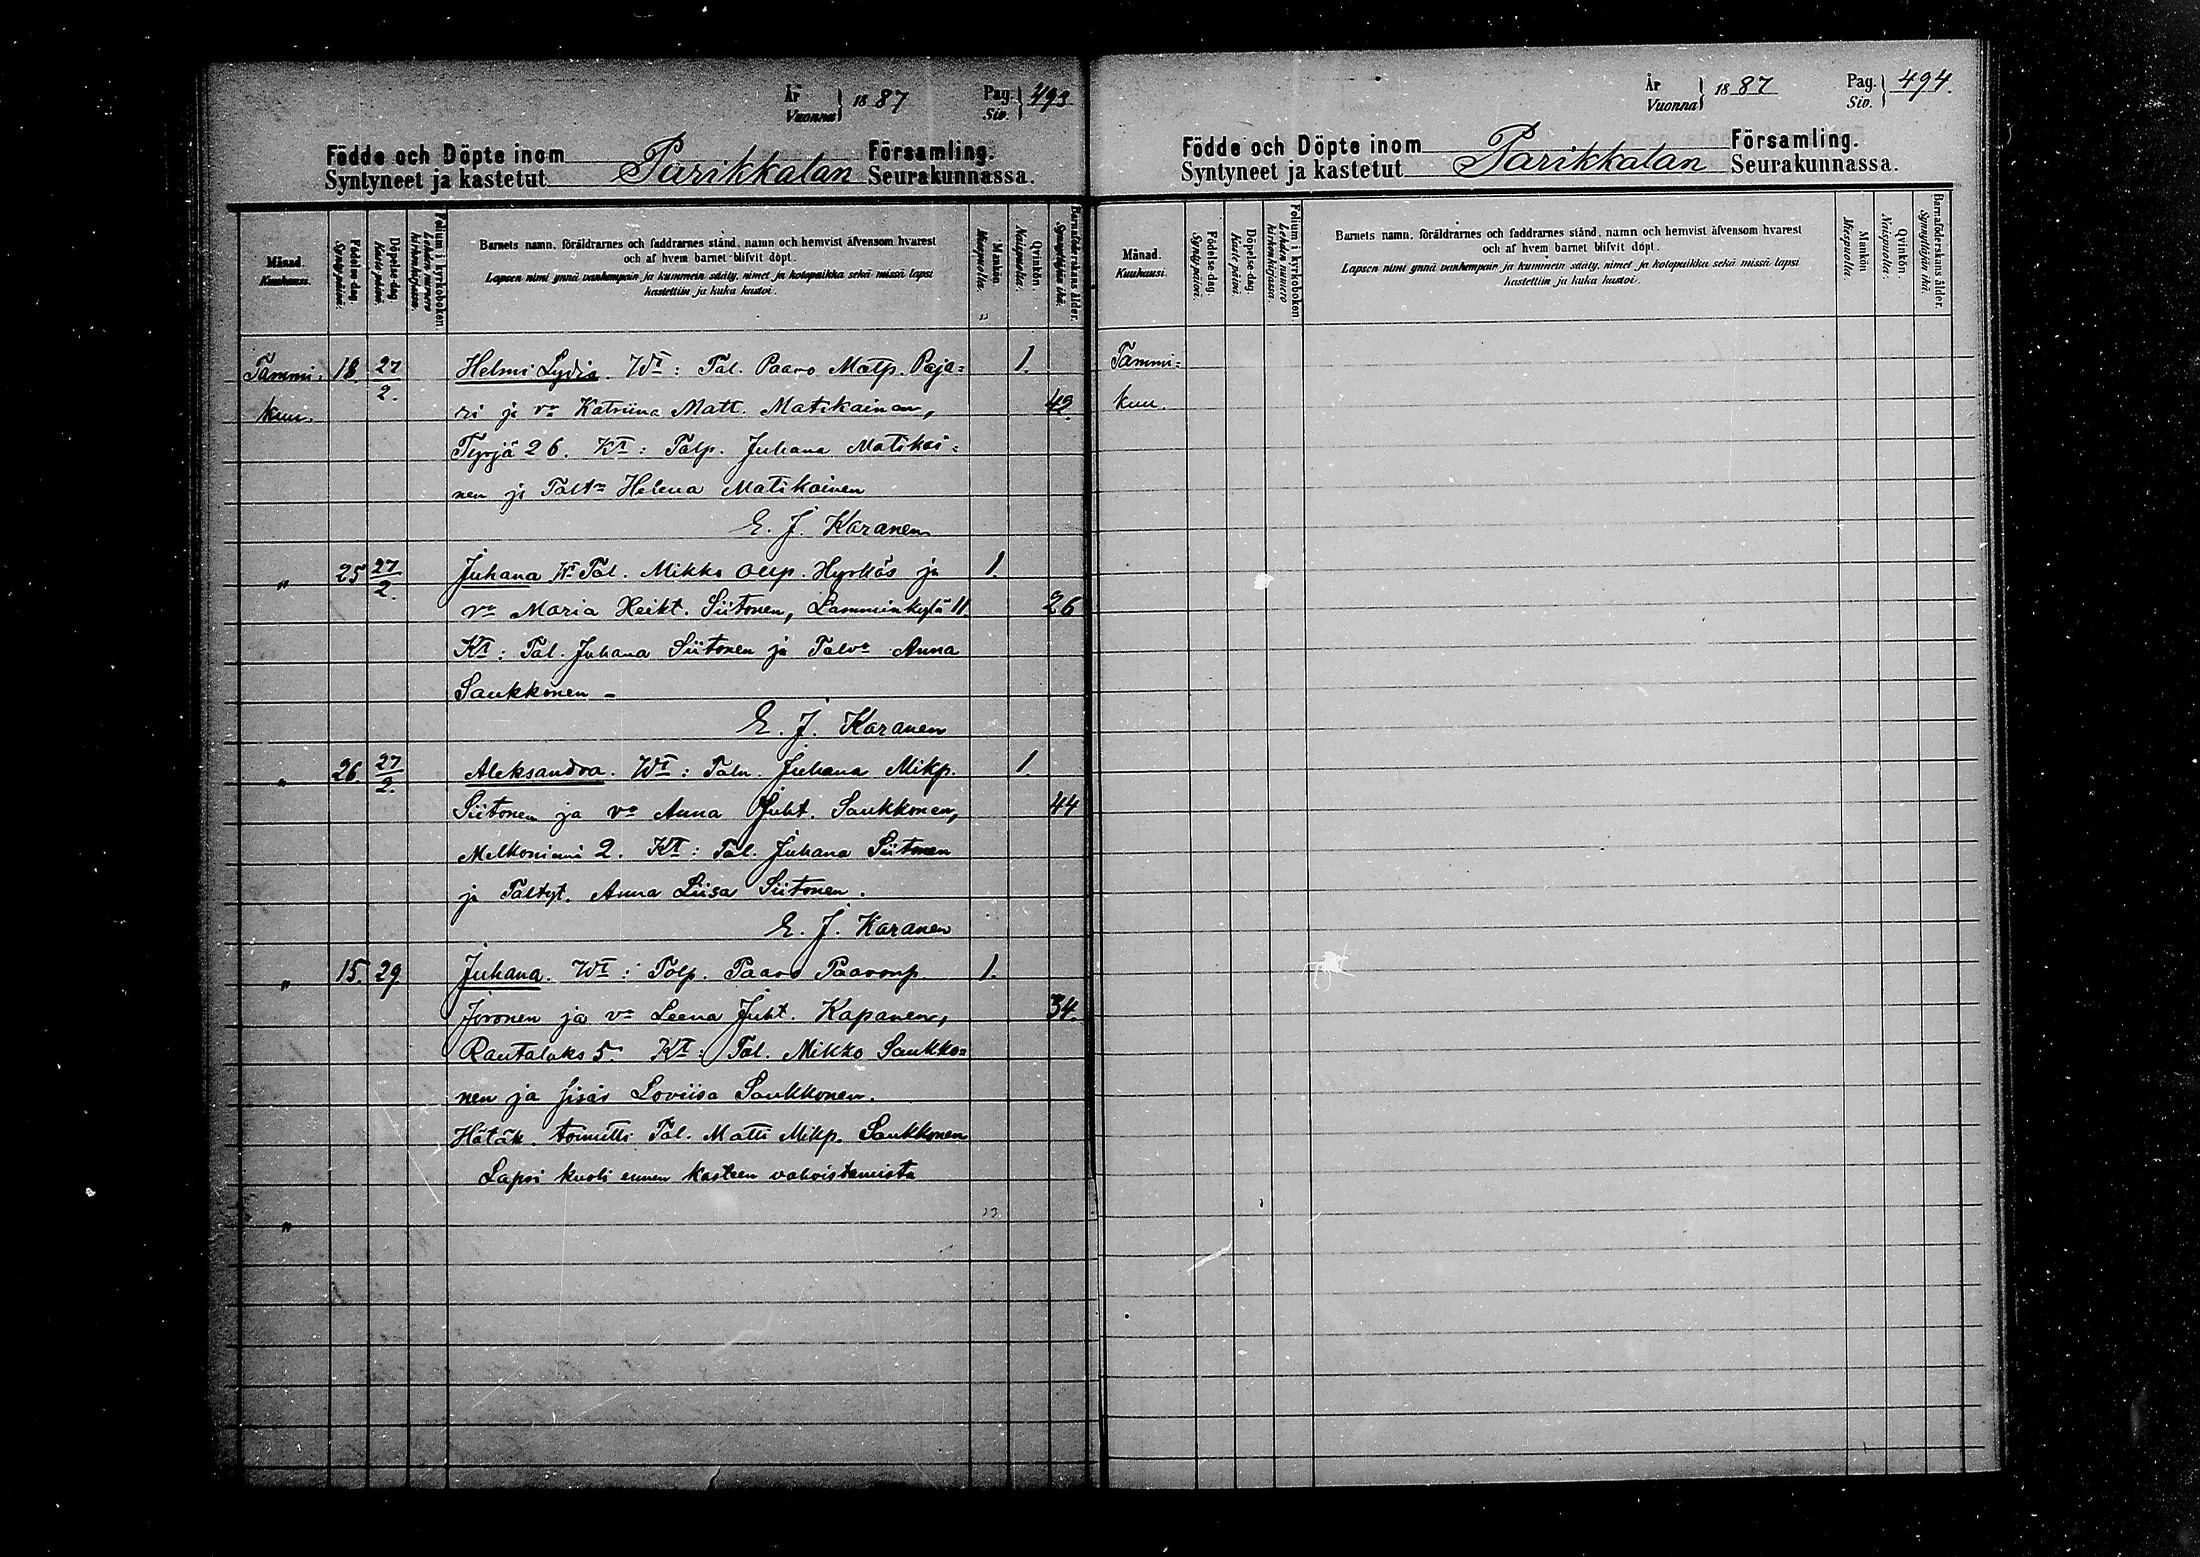 År
Vuonna } 1887 Pag.
Siv. } 493
Födde och Döpte inom Församling.
Syntyneet ja kastetut Parikkalan Seurakunnassa.
Månad.
Kuukausi.
Födelse-dag.
Synty-päivä.
Döpelse-dag.
Kaste-päivä.
Folium i kyrkoboken.
Lehden numero
kirkonkirjassa.
Barnets namn, föräldrarnes och faddrarnes stånd, namn och hemvist äfvensom hvarest
och af hvem barnet blifvit döpt.
Lapsen nimi ynnä vanhempain ja kummein sääty, nimet ja kotopaikka sekä missä lapsi
kastettiin ja kuka kastoi.
Mankön.
Miespuolta.
Qvinkön.
Naispuolta.
Barnaföderskans ålder.
Synnyttäjän ikä.
Tammi- 18. 27/2. Helmi Lydia. Wt: Tal. Paavo Matp. Paja= 1.
kuu. ri ja vo Katriina Matt. Matikainen, 42.
Tyrjä 26. Kt: Talp. Juhana Matikai=
nen ja Taltr Helena Matikainen
E. J. Karanen
" 25 27/2. Juhana Wt Tal. Mikko Ollp. Hyrkäs ja 1.
vo Maria Heikt. Siitonen, Lamminkylä 11. 26
Kt: Tal. Juhana Siitonen ja Talvo Anna
Saukkonen –
E. J. Karanen
" 26 27/2. Aleksandra. Wt: Taln. Juhana Mikp. 1.
Siitonen ja vo Anna Juht. Saukkonen, 44
Melkoniemi 2. Kt: Tal. Juhana Siitonen
ja Taltyt. Anna Liisa Siitonen.
E. J. Karanen
" 15. 29. Juhana. Wt: Talp. Paavo Paavonp. 1.
Joronen ja vo Leena Juht. Kapanen, 34.
Rautalaks 5 Kt: Tal. Mikko Saukko=
nen ja sisar Loviisa Saukkonen.
Hätäk. toimitti Tal. Matti Mikp. Saukkonen
Lapsi kuoli ennen kasteen vahvistamista
"
År
Vuonna } 1887 Pag.
Siv. } 494.
Födde och Döpte inom Församling.
Syntyneet ja kastetut Parikkalan Seurakunnassa.
Månad.
Kuukausi.
Födelse-dag.
Synty-päivä.
Döpelse-dag.
Kaste-päivä.
Folium i kyrkoboken.
Lehden numero
kirkonkirjassa.
Barnets namn, föräldrarnes och faddrarnes stånd, namn och hemvist äfvensom hvarest
och af hvem barnet blifvit döpt.
Lapsen nimi ynnä vanhempain ja kummein sääty, nimet ja kotopaikka sekä missä lapsi
kastettiin ja kuka kastoi.
Mankön
Miespuolta.
Qvinkön.
Naispuolta.
Barnaföderskans ålder.
Synnyttäjän ikä.
Tammi=
kuu.